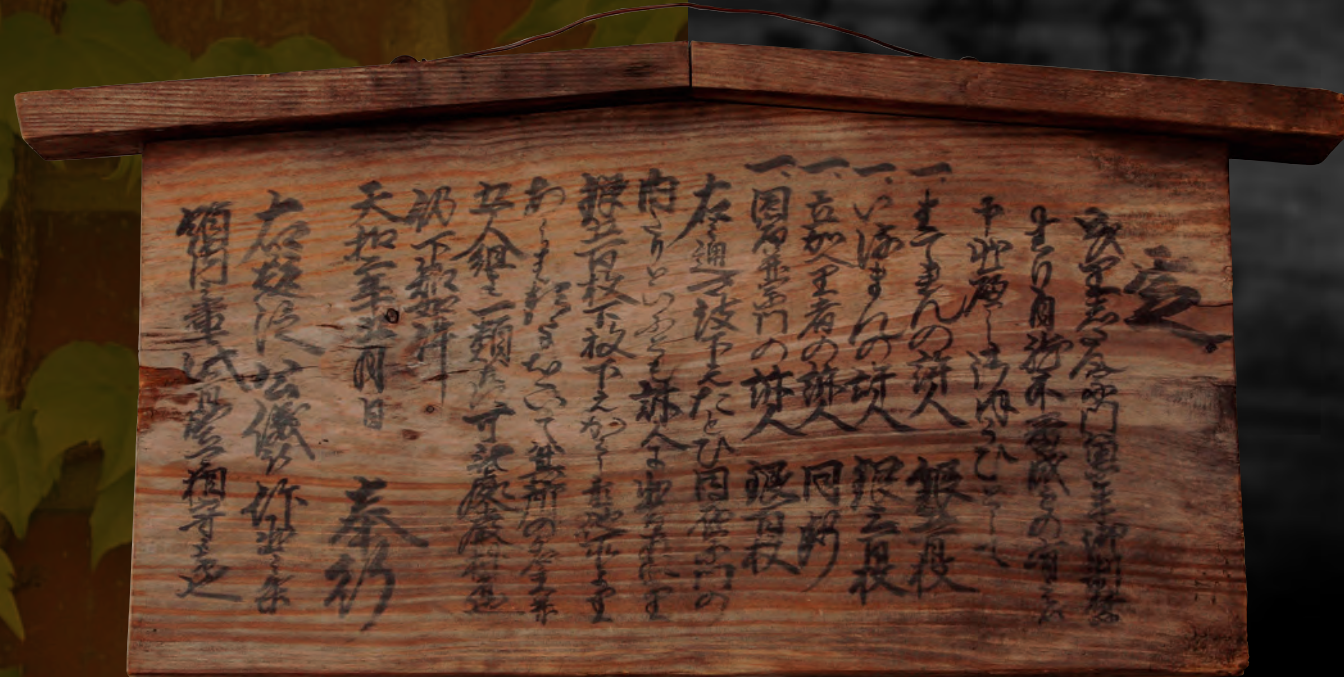 定
きりしたん宗門は累年御制禁
たり自然不審成もの有之は
申出へし御ほうひとして
一 はてれんの訴人 銀五百枚
一 いるまんの訴人 銀三百枚
一 立かへり者の訴人 同断
一 同宿并宗門の訴人 銀百枚
右之通可被下之たとひ同宿宗門の
内たりといふとも訴人に出る品により
銀五百枚可被下之かくし置他所より
あらはるゝにおゐては其所の名主并
五人組迄一類共可被処厳科者也
仍下知如件
天和二年五月日 奉行
右被
領内 堅可相守者也